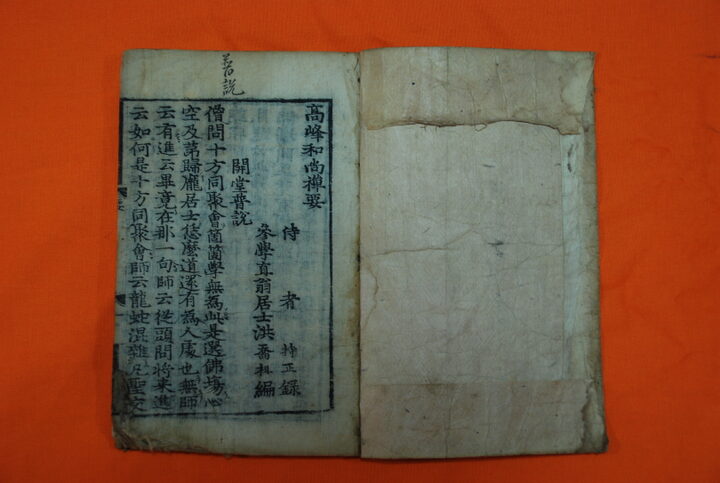 普說
高峰和尚禪要
侍者 持正 錄
參學直翁居士洪喬祖編
開堂普說
僧問十方同聚會箇箇學無為此是選佛場心
空及第歸龐居士恁麽道還有為人處也無師
云有進云畢竟在那一句師云從頭問將來進
云如何是十方同聚會師云龍蛇混雜凡聖交